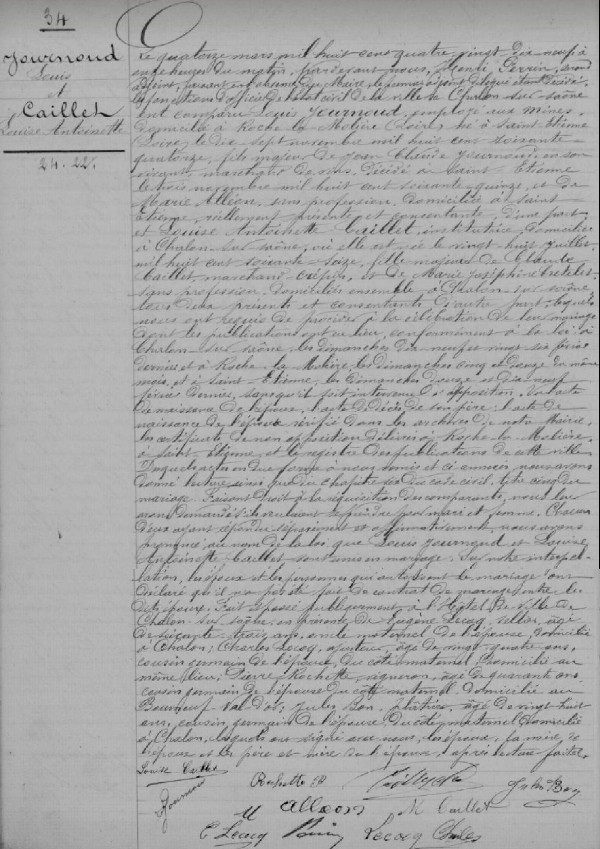 34
Journoud
Louis
et
Caillet
Louise Antoinette
Le quatorze mars mil huit cent quatre vingt dix neuf à
onze heures du matin, pardevant nous, Henri Perrin, second
adjoint,
les fonctions d'officier de l'état civil de la ville de Chalon sur Saône
ont comparu Louis Journoud, employé aux mines,
domicilié à Roche la Molière (Loire) né à Saint Etienne
(Loire) le dix sept novembre mil huit cent soixante
quatorze, fils majeur de Jean Claude Journoud, en son
vivant décédé à Saint Etienne
le trois novembre mil huit cent soixante quinze, et de
Marie Alléon, sans profession, domiciliée à Saint
Etienne, présente et consentante, d'une part,
et Louise Antoinette Caillet, institutrice, domiciliée
à Chalon sur Saône, où elle est née le vingt huit juillet
mil huit cent soixante seize, fille majeure de Claude
Caillet, marchand crépin, et de Marie Joséphine
sans profession, domiciliés ensemble à Chalon sur Saône,
tous deux présents et consentants d'autre part. Lesquels
nous ont requis de procéder à la célébration de leur mariage
dont les publications ont eu lieu, conformément à la loi à
Chalon sur Saône, les dimanches dix neuf et vingt six février
dernier et à Roche la Molière, les dimanches cinq et douze du même
mois, et à Saint Etienne, les dimanches douze et dix neuf
février dernier, sans qu'il soit intervenu d'opposition. Vu l'acte
de naissance de l'époux, l'acte de décès de son père; l'acte de
naissance de l'épouse vérifié dans les archives de notre Mairie,
les certificats de non opposition délivrés à Roche la Molière,
à Saint Etienne et le registre des publications de cette ville
Desquels actes en due forme à nous remis et ci annexés nous avons
donné lecture ainsi que du chapitre six du code civil, titre cinq du
mariage. Faisant droit à la réquisition des comparants, nous leur
avons demandé s'ils veulent se prendre pour mari et femme. Chacun
d'eux ayant répondu séparément et affirmativement, nous avons
prononcé au nom de la loi que Louis Journoud et Louise
Antoinette Caillet sont unis en mariage. Sur notre interpel-
lation, les époux et les personnes qui autorisent le mariage ont
déclaré qu'il n'a pas été fait de contrat de mariage entre les
dits époux. Fait et passé publiquement à l'Hôtel de Ville de
Chalon sur Saône en présence de Eugène Lecoq, sellier, âgé
de soixante trois ans, oncle maternel de l'épouse, domicilié
à Chalon; Charles Lecoq, ajusteur, âgé de vingt quatre ans,
cousin germain de l'épouse, du côté maternel, domicilié au
même lieu; Pierre Rochette, vigneron, âgé de quarante ans,
cousin germain de l'épouse du côté maternel domicilié au
Bourneuf val d'or; Jules Bon, âgé de vingt huit
ans, cousin germain de l'épouse du côté maternel domicilié
à Chalon, lesquels ont signé avec nous, les époux, la mère de
l'époux et les père et mère de l'épouse, après lecture faite.
Louise Caillet
Journoud
Rochette P
Jules Bon
Alléon
M Caillet
E Lecocq
Lecocq Charles